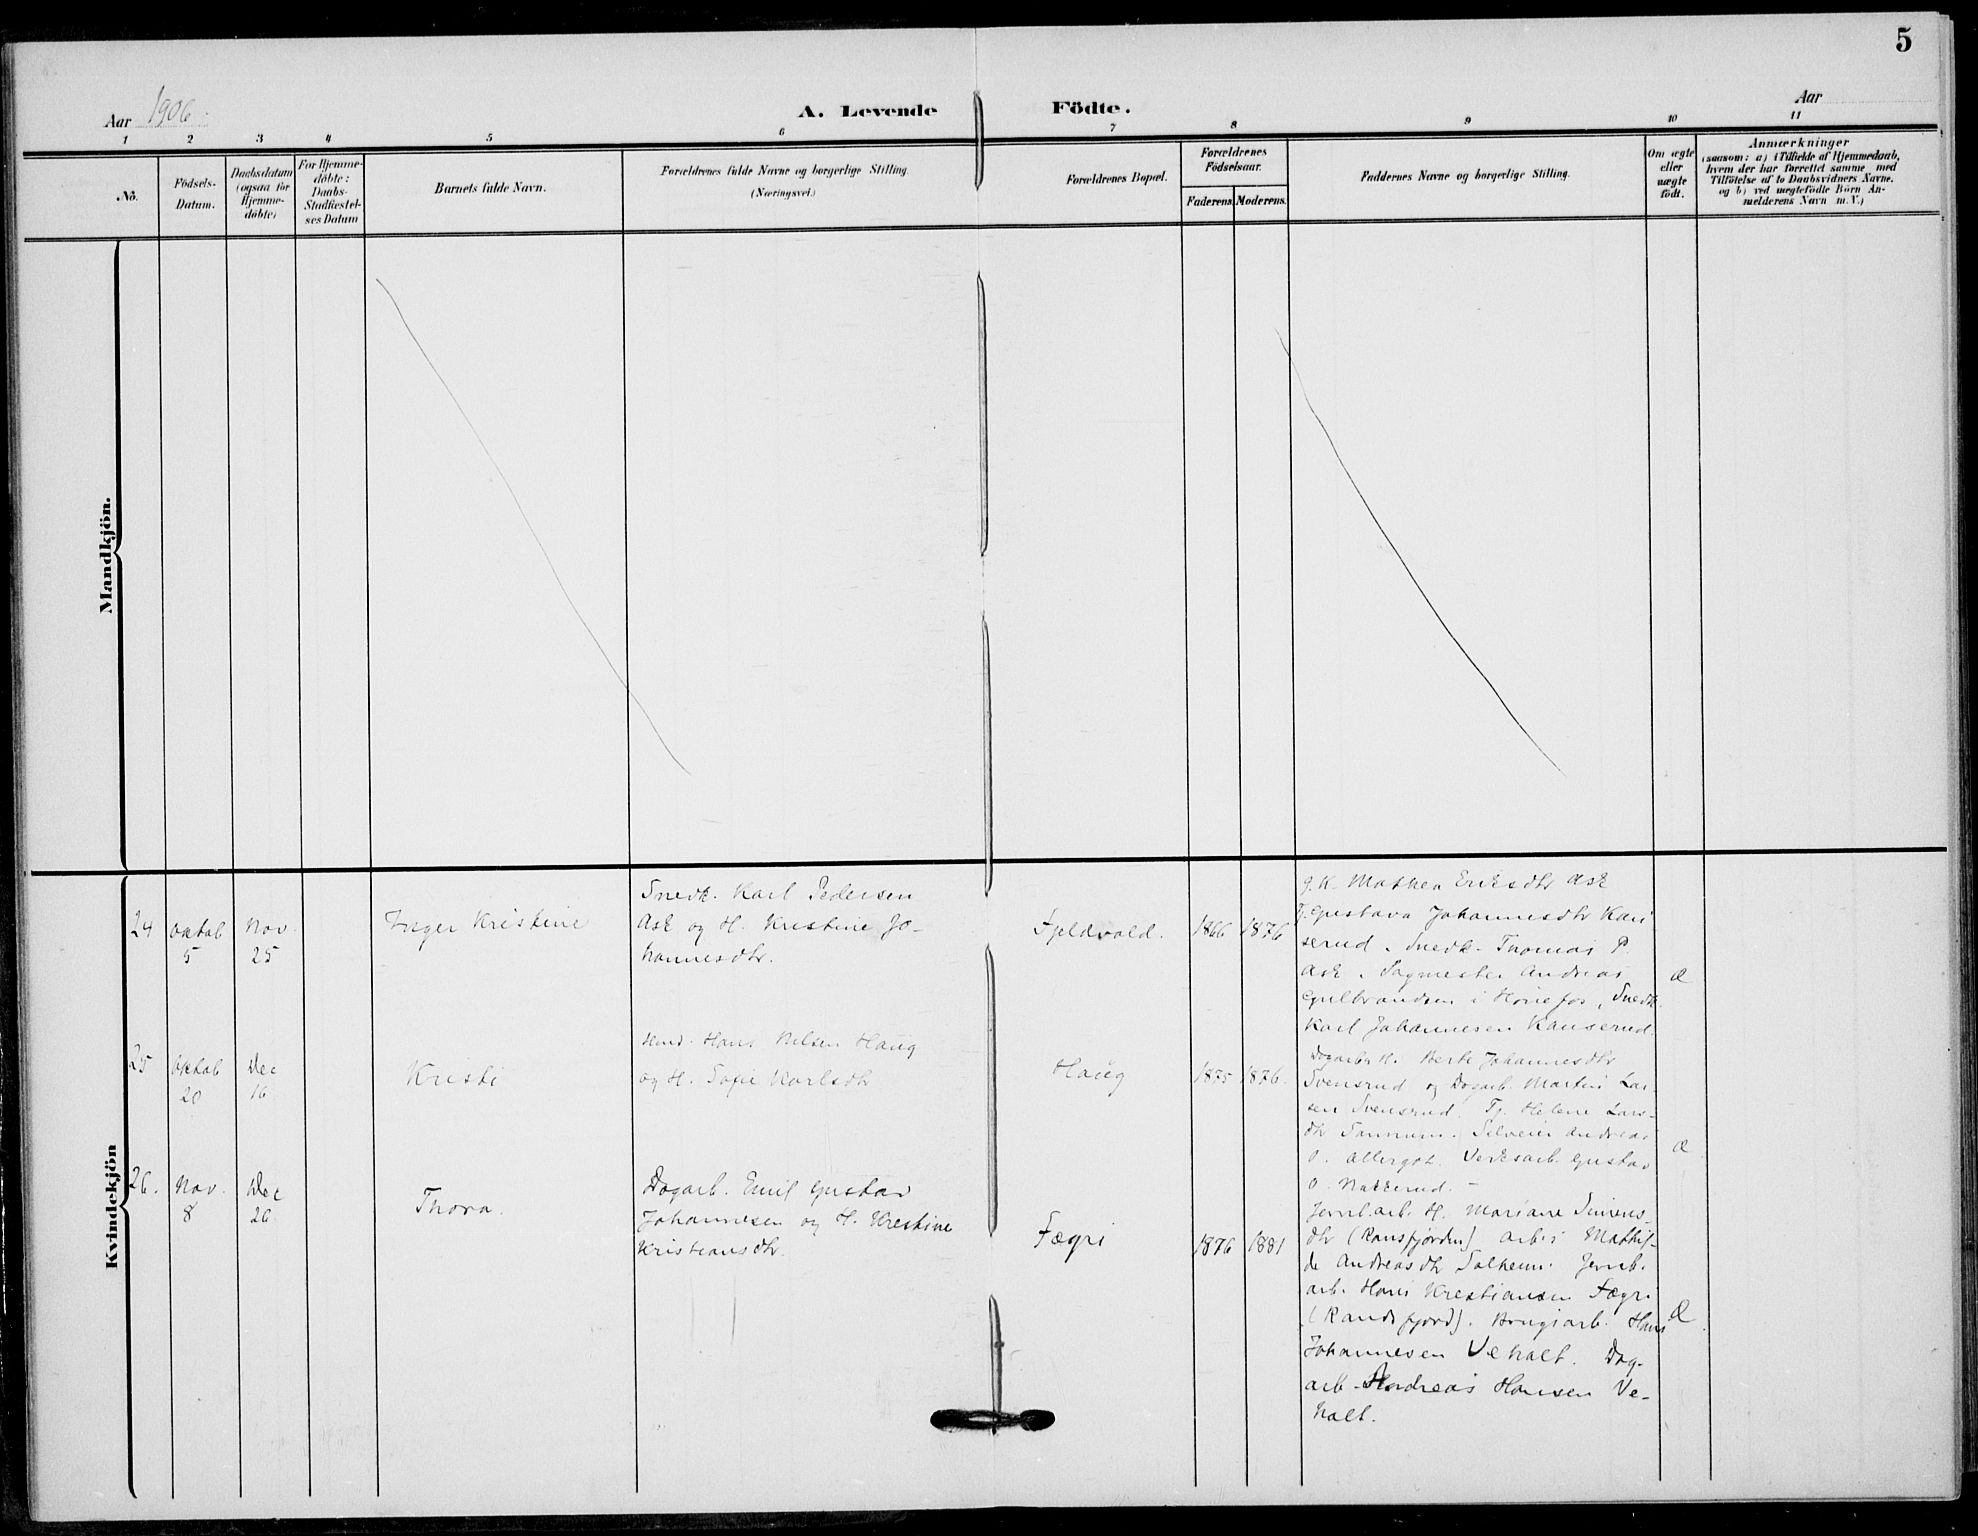 5
Aar 1906.
A. Levende Födte.
Aar
1 2 3 4 5 6 7 8 9 10 11
No.
Födsels-
Datum.
Daabsdatum
(ogsaa for
Hjemme-
döbte)
For Hjemme-
döbte:
Daabs-
Stadfæstel-
ses Datum
Barnets fulde Navn.
Forældrenes fulde Navne og borgerlige Stilling.
(Næringsvei.)
Forældrenes Bopæl.
Forældrenes
Födselsaar.
Faderens Moderens.
Faddernes Navne og borgerlige Stilling.
Om ægte
eller
uægte
födt.
Anmærkninger
(saasom: a) i Tilfælde af Hjemmedaab,
hvem der har forrettet samme, med
Tilföielse af to Daabsvidners Navne.
og b) ved uægtefödte Börn An-
melderens Navn m. V.)
Mandkjön.
Kvindekjön
24
oktob
5
Nov.
25
Inger Kristine
Snedk. Karl Pedersen
Ask og H. Kristine Jo-
hannesdtr.
Fjeldvold.
1866 1876
g. K. Mathea Eriksdtr Ask
Tj. Gustava Johannesdtr
serud. Snedk. Thomas P.
Ask. Sagmester Andreas
Gulbrandsen i Hönefos, Snedk.
Karl Johannesen
Æ
25
oktob
20
Dec
16
Kristi
Hans Nilsen Haug
og H. Sofie Karlsdtr
Haug
1875 1876.
Dagarb. H. Berte Johannesdtr
Svensrud og Dagarb. Martin Lar-
sen Svensrud. Tj. Helene Lars-
dtr Andreas
O. Verksarb. Gustav
O. Nakkerud. -
Æ
26.
Nov.
8
Dec
26
Thora.
Dagarb. Emil Gustav
Johannesen og H. Kristine
Kristiansdtr.
Fægri
1876 1881
Jernb.arb. H. Mariane Simens-
dtr (Ransfjorden) Mathil-
de Andreasdtr Solheim. Jernb.
arb. Hans Kristiansen Fægri
(Randsfjord). Brugsarb. Hans
Johannesen Veholt. Dag-
arb. Andreas Hansen Ve-
holt.
Æ